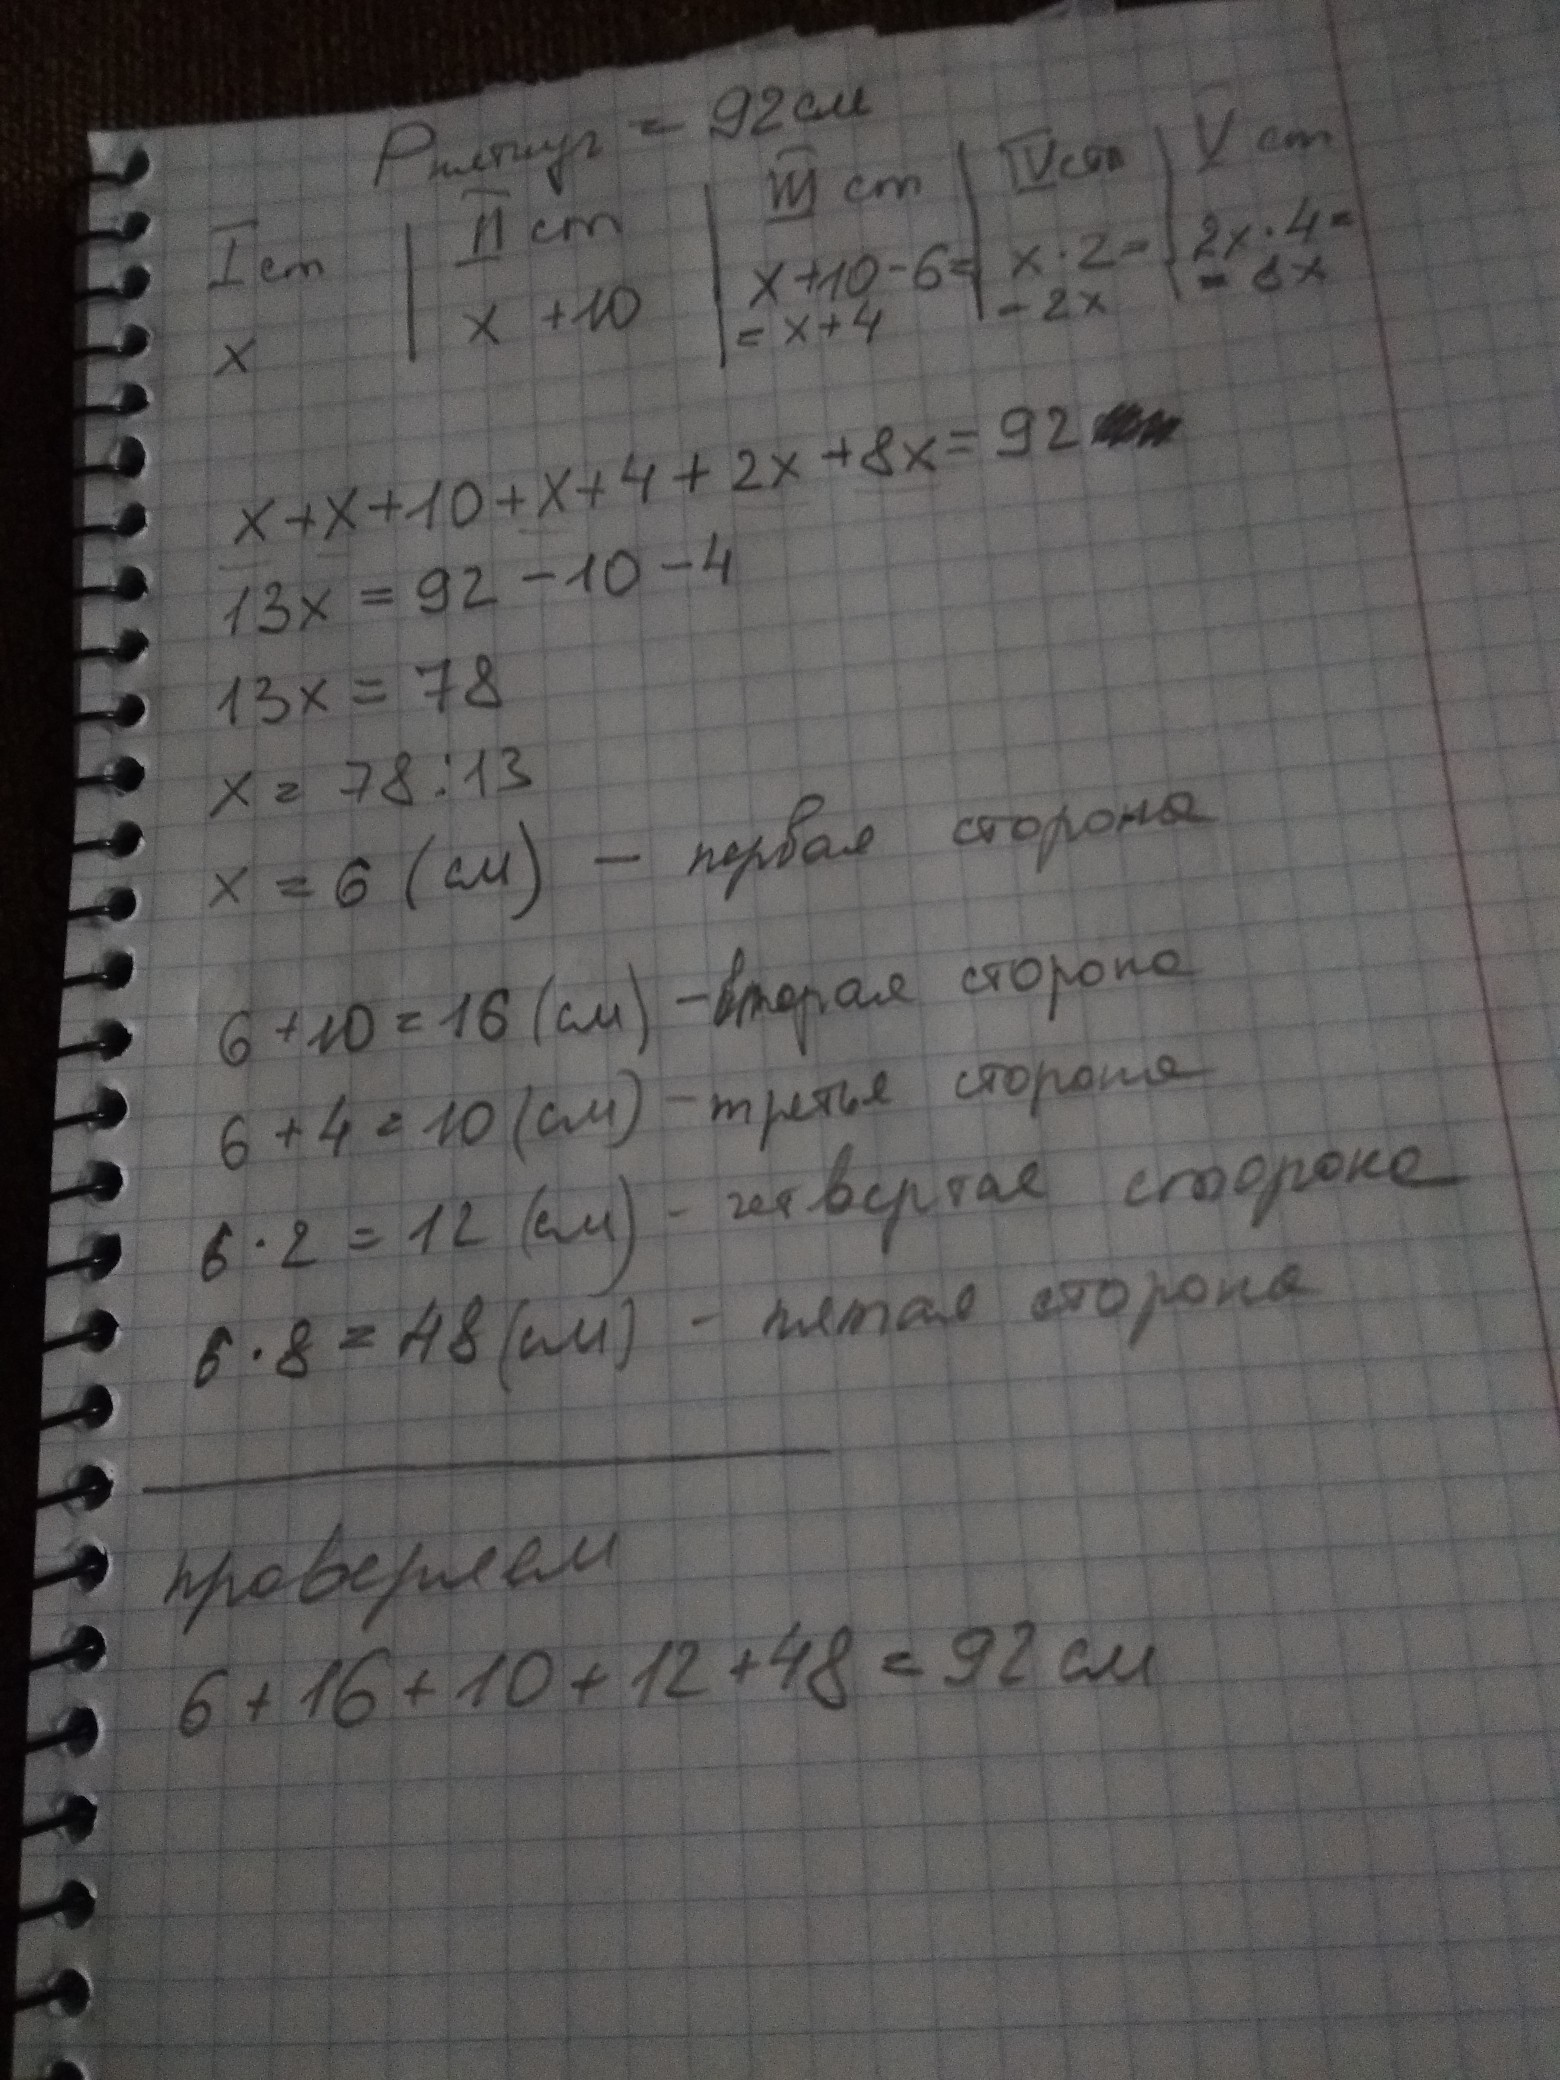 Pпятиуг = 92 см
I ст | II ст | III ст | IV ст | V ст
x | x + 10 | x+10-6= | x·2= | 2x·4=
= x+4 | = 2x | = 8x
x+x+10+x+4+2x+8x=92
13x = 92 - 10 - 4
13x = 78
x = 78:13
x = 6 (см) - первая сторона
6+10=16 (см) - вторая сторона
6+4=10 (см) - третья сторона
6·2=12 (см) - четвертая сторона
6·8=48 (см) - пятая сторона
проверяем
6+16+10+12+48=92 см